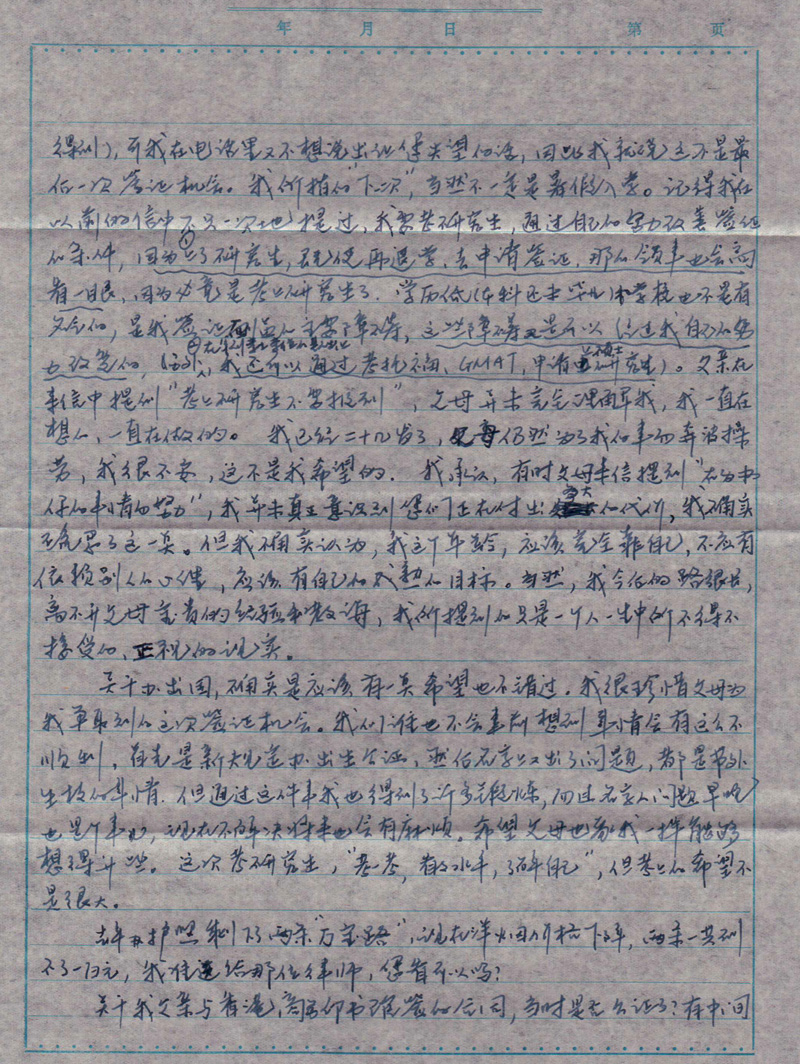 年 月 日 第 页
得到），而我在电话里又不想说出让您失望的话，因此我就说这不是最
后一次签证机会。我所指的“下一次”，当然不一定是寒假入学。记得我在
以前的信中不只一次地提过，我要考研究生，通过自己的努力改善签证
的条件，因为上了研究生，即使再退学，去申请签证，那么领事也会高
看一眼，因为毕竟是考上研究生了。学历低（本科还未毕业）学校也不是有
名的，是我签证的主要障碍，这些障碍是可以经过我自己的努
力改变的，（另外，我还可以通过考托福、GMAT，申请研究生）。父亲在
来信中提到“考上研究生不要报到”，父母并未完全理解我，我一直在
想的、一直在做的。我已经二十几岁了，父母仍然为了我的事而奔波操
劳，我很不安，这不是我希望的。我承认，有时父母来信提到“在为书
你的事情而努力”，我并未真正意识到您们正在付出的代价，我确实
忽略了这一点。但我确实认为，我这个年龄，应该完全靠自己，不应有
依赖别人的心情，应该有自己的成熟的目标。当然，我今后的路很长，
离不开父母宝贵的经验和教诲，我所提到的只是一个人一生中所不得不
接受的、正视的现实。
关于办出国，确实是应该有一点希望也不错过。我很珍惜父母为
我争取到的这次签证机会。我们谁也不会事前想到事情会有这么不
顺利，首先是新规定办出生公证，然后名字上又出了问题，都是节外
生枝的事情。但通过这件事我也得到了许多锻炼，而且名字问题早晚
也是个事，现在不解决将来也会有麻烦。希望父母也和我一样能够
想得开些。这次考研究生，“考一考，看的水平，了解自己”，但考上的希望不
是很大。
去年办护照剩下了两条“万宝路”，现在洋烟价格下降，两条一共到
不了一百元，我准送给那位律师，您看可以吗？
关于我父亲与香港签的合同，当时是怎么公证的？有中间